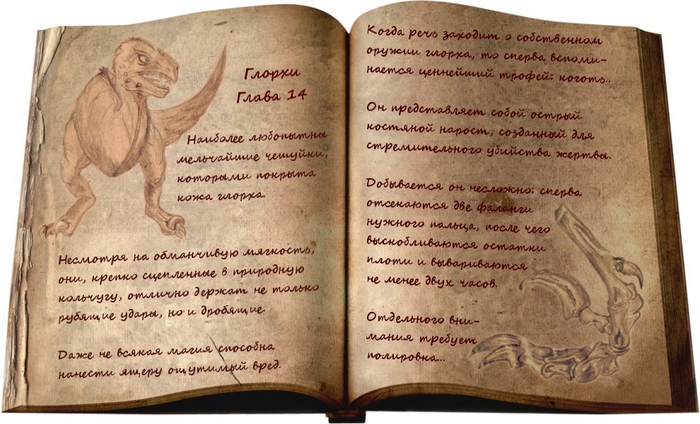 Глорхи
Глава 14
Наиболее любопытны
мельчайшие чешуйки,
которыми покрыта
кожа глорха.
Несмотря на обманчивую мягкость,
они, крепко сцепленные в природную
кольчугу, отлично держат не только
рубящие удары, но и дробящие.
Даже не всякая магия способна
нанести ящеру ощутимый вред.
Когда речь заходит о собственном
оружии глорха, то сперва вспоми-
нается ценнейший трофей: коготь..
Он представляет собой острый
костяной нарост, созданный для
стремительного убийства жертвы.
Добывается он несложно: сперва
отсекаются две фаланги
нужного пальца, после чего
выскобливаются остатки
плоти и вывариваются
не менее двух часов.
Отдельного вни-
мания требует
полировка...